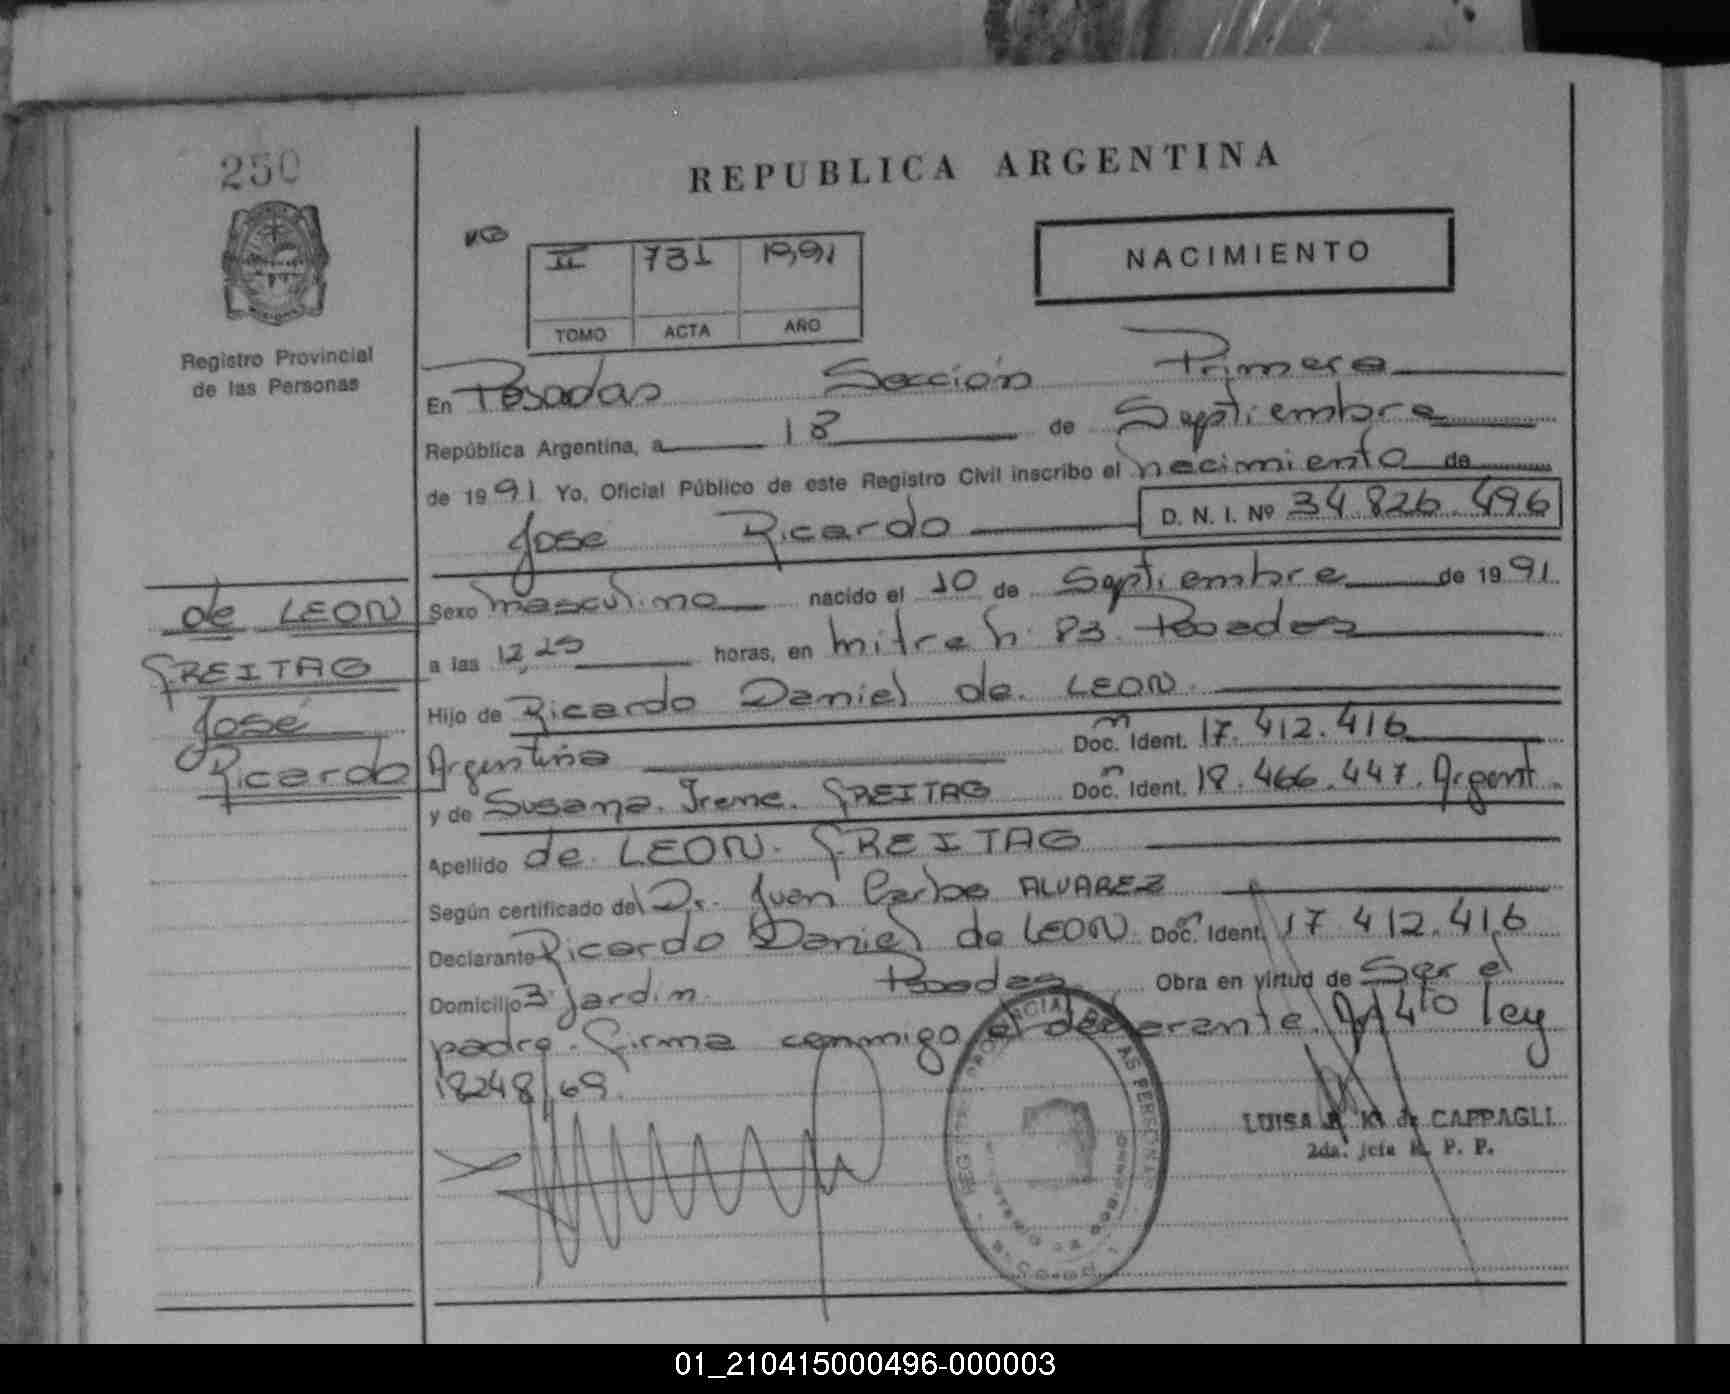 250
REPUBLICA ARGENTINA
NACIMIENTO
II 731 1991
TOMO ACTA AÑO
Registro Provincial
de las Personas
En Posadas Sección Primera
República Argentina, a 18 de Septiembre
de 1991 Yo, Oficial Público de este Registro Civil inscribo el nacimiento de
José Ricardo D. N. I. Nº 34.826.496
de LEON
FREITAG
José
Ricardo
Sexo masculino nacido el 10 de Septiembre de 1991
a las 12,25 horas, en mitre h. 83. Posadas
Hijo de Ricardo Daniel de LEON
Argentina Doc. Ident. 17.412.416
y de Susana Irene FREITAG Doc. Ident. 18.466.447. Argent.
Apellido de LEON FREITAG
Según certificado del Dr. Juan Carlos ALVAREZ
Declarante Ricardo Daniel de LEON Doc. Ident. 17.412.416
Domicilio 3 Jardin Posadas Obra en virtud de Ser el
padre. Firma conmigo el declarante. Art 40 ley
18248/69.
LUISA K. de CAPPAGLI
2da. jefa R. P. P.
01_210415000496-000003